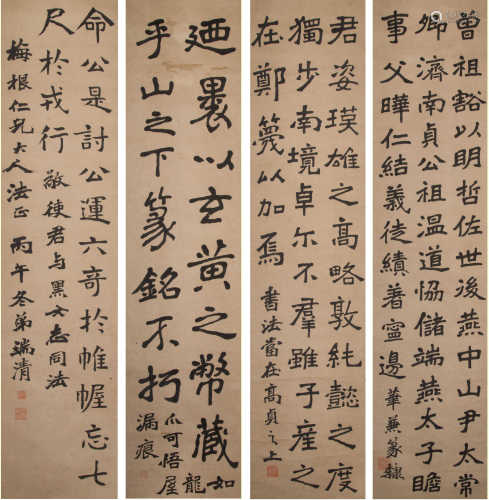 曾祖豁以明哲佐世後燕中山尹太常
卿濟南貞公祖溫道恊儲端燕太子瞻
事父曄仁結義徒績著寧邊 華兼篆隸
君姿璞雄之高略敦純懿之度
獨步南境卓尔不羣雖子產之
在鄭篾以加焉 書法當在高貞之上
迺褁以玄黃之幣藏 如
龍
乎山之下篆銘不朽 爪可悟屋
漏痕
命公是討公運六奇於帷幄忘七
尺於戎行 敬使君与黑女志同法
梅根仁兄大人法正 丙午冬弟瑞清